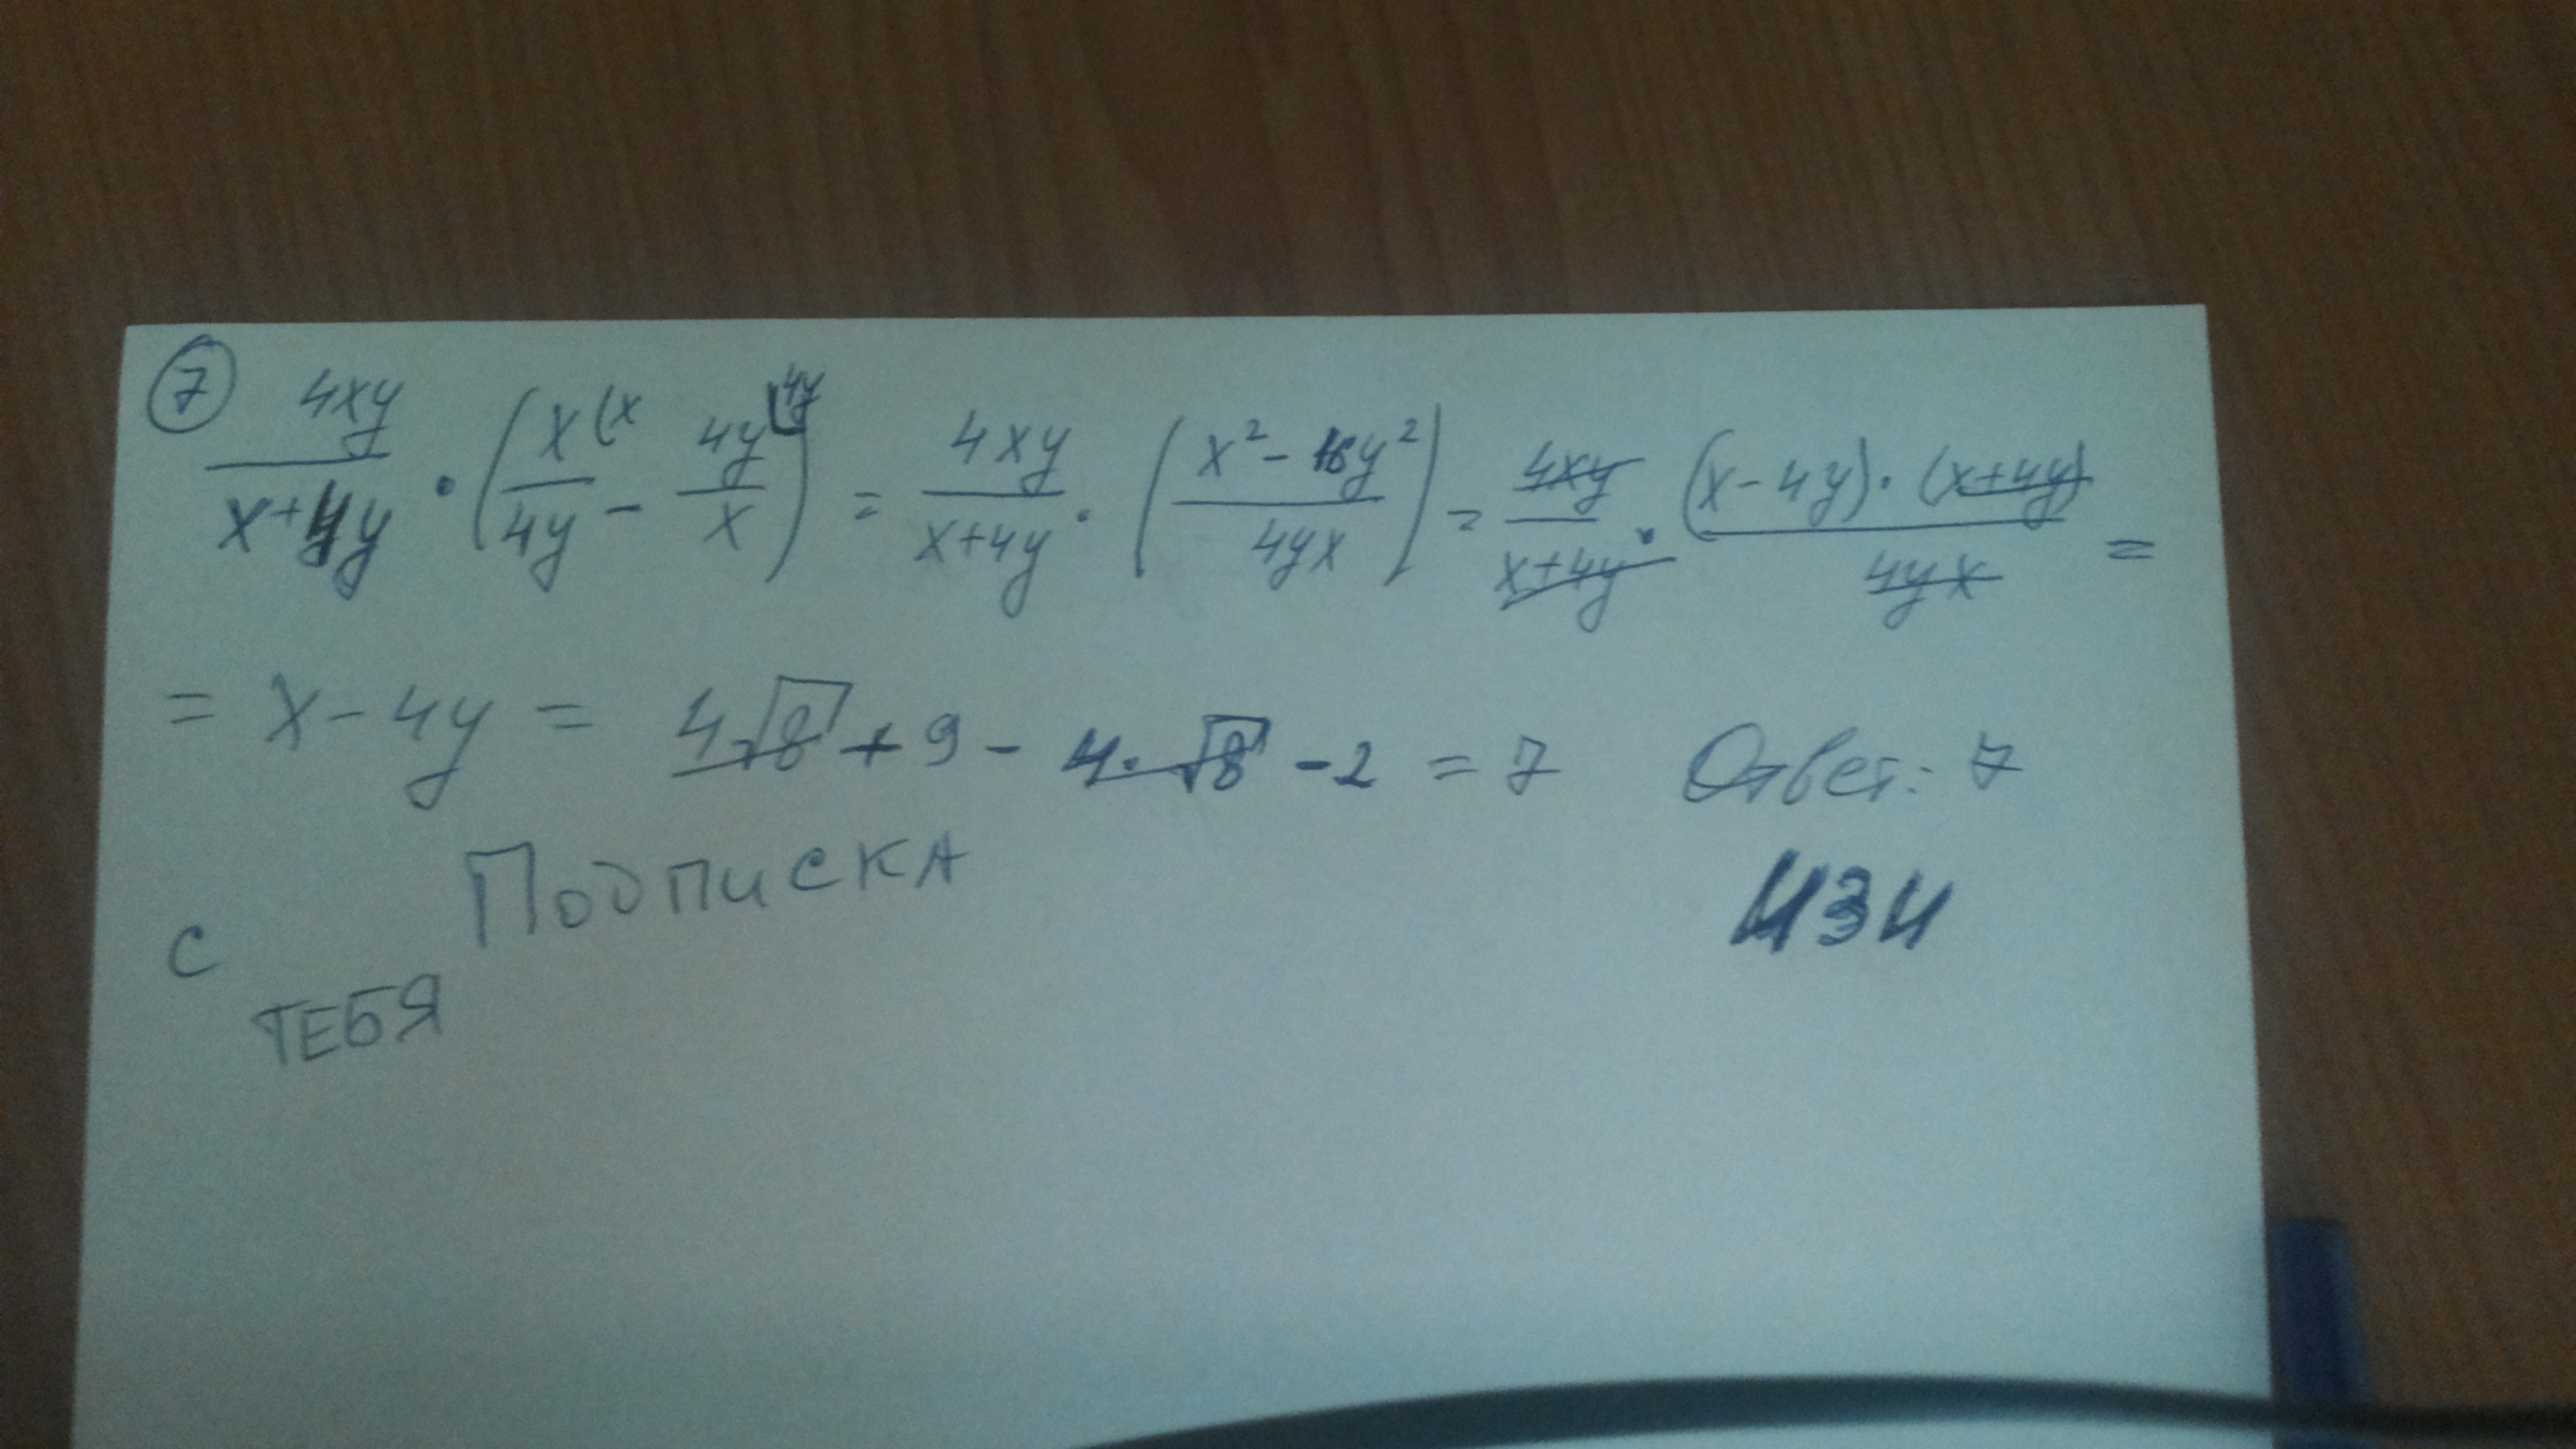 ⑦ 4xy/(x+4y) · (x(x/4y - 4y(4y/x) = 4xy/(x+4y) · ((x² - 16y²)/4yx) = 4xy/(x+4y) · (x-4y)·(x+4y)/4yx =
= x - 4y = 4√8 + 9 - 4·√8 - 2 = 7 Ответ: 7
Подписка ИЗИ
С
ТЕБЯ